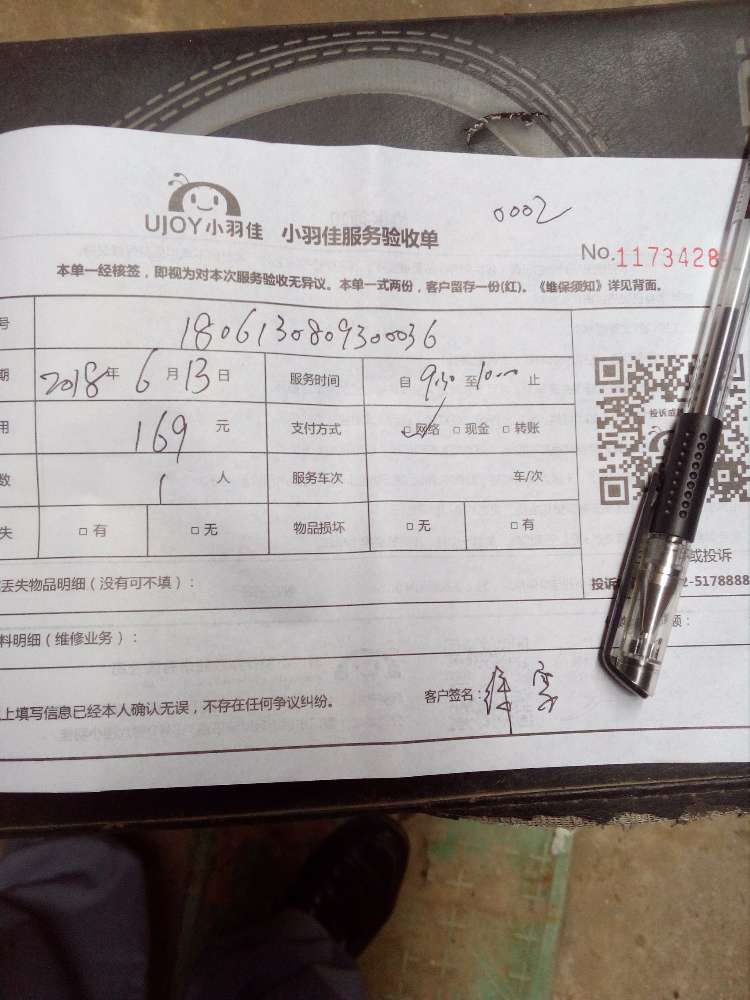 0002
UJOY小羽佳 小羽佳服务验收单
No.1173428
本单一经核签，即视为对本次服务验收无异议。本单一式两份，客户留存一份(红)。《维保须知》详见背面。
号 180613080930036
期 2018年6月13日 服务时间 自9:30至10:00止
用 169元 支付方式 □网络 □现金 □转账
数 1人 服务车次 车/次
失 □有 □无 物品损坏 □无 □有
投诉
或投诉
丢失物品明细（没有可不填）：
投诉 2-5178888
料明细（维修业务）：
额：
上填写信息已经本人确认无误，不存在任何争议纠纷。
客户签名：